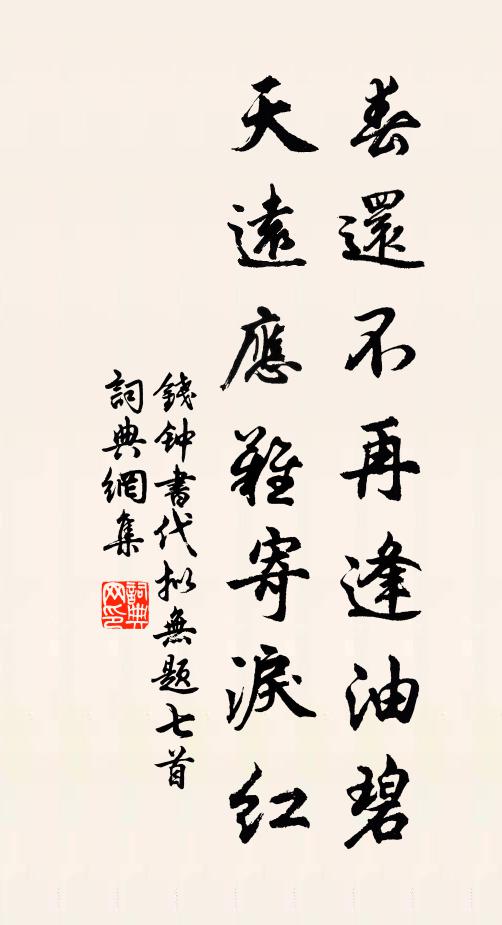 春還不再逢油碧
天遠應難寄淚紅
錢鈡書代拟無題七首
詞典網集
詞典网印